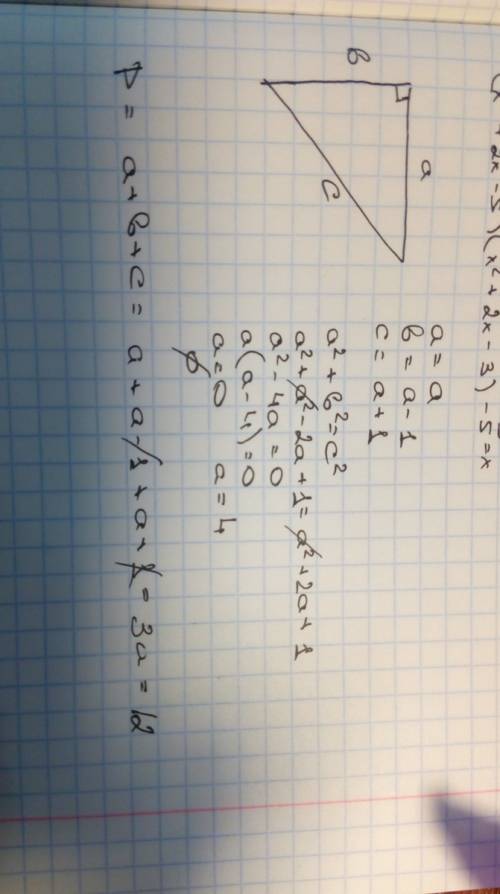 + 2x - 5)(x² + 2x - 3) - 5 = x
a
в
c
a = a
в = a - 1
c = a + 1
a² + в² = c²
a² + a² - 2a + 1 = a² + 2a + 1
a² - 4a = 0
a(a - 4) = 0
a = 0 a = 4
∅
P = a + в + c = a + a - 1 + a + 1 = 3a = 12